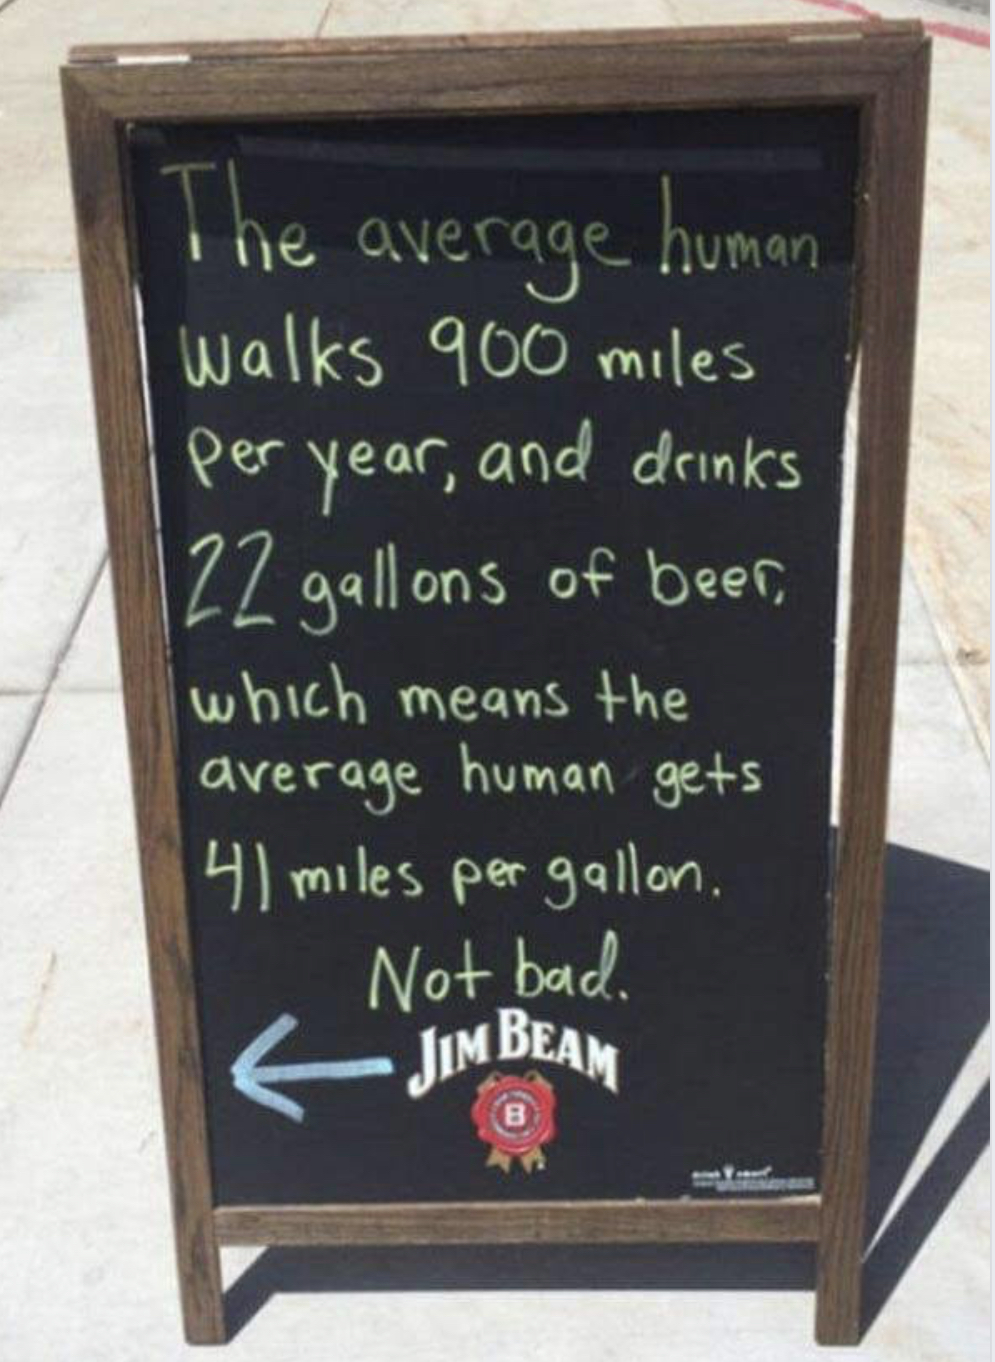 The average human
walks 900 miles
per year, and drinks
22 gallons of beer,
which means the
average human gets
41 miles per gallon.
Not bad.
JIM BEAM
B
drink smart